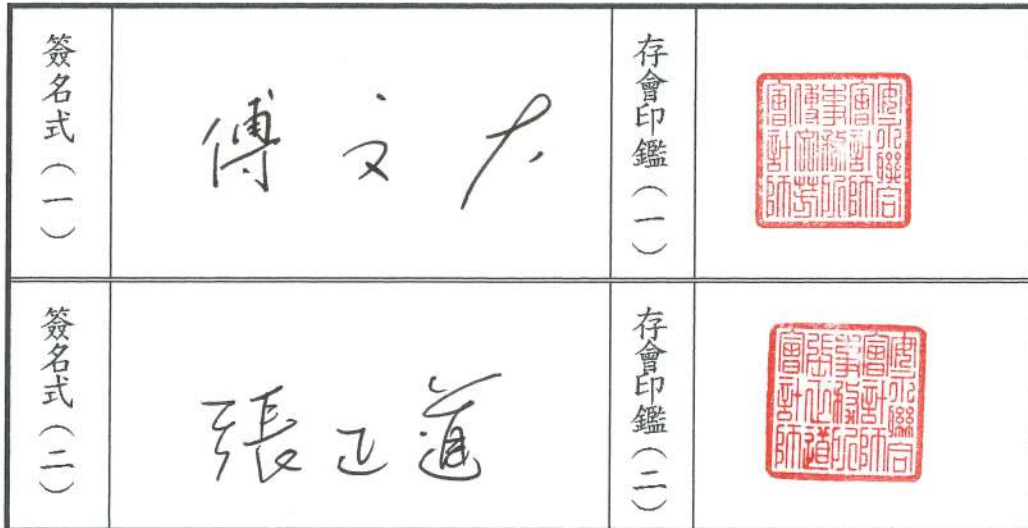 簽名式(一)
傅文芳
存會印鑑(一)
安永聯合
會計師
事務所
傅文芳
會計師
簽名式(二)
張正道
存會印鑑(二)
安永聯合
會計師
事務所
張正道
會計師